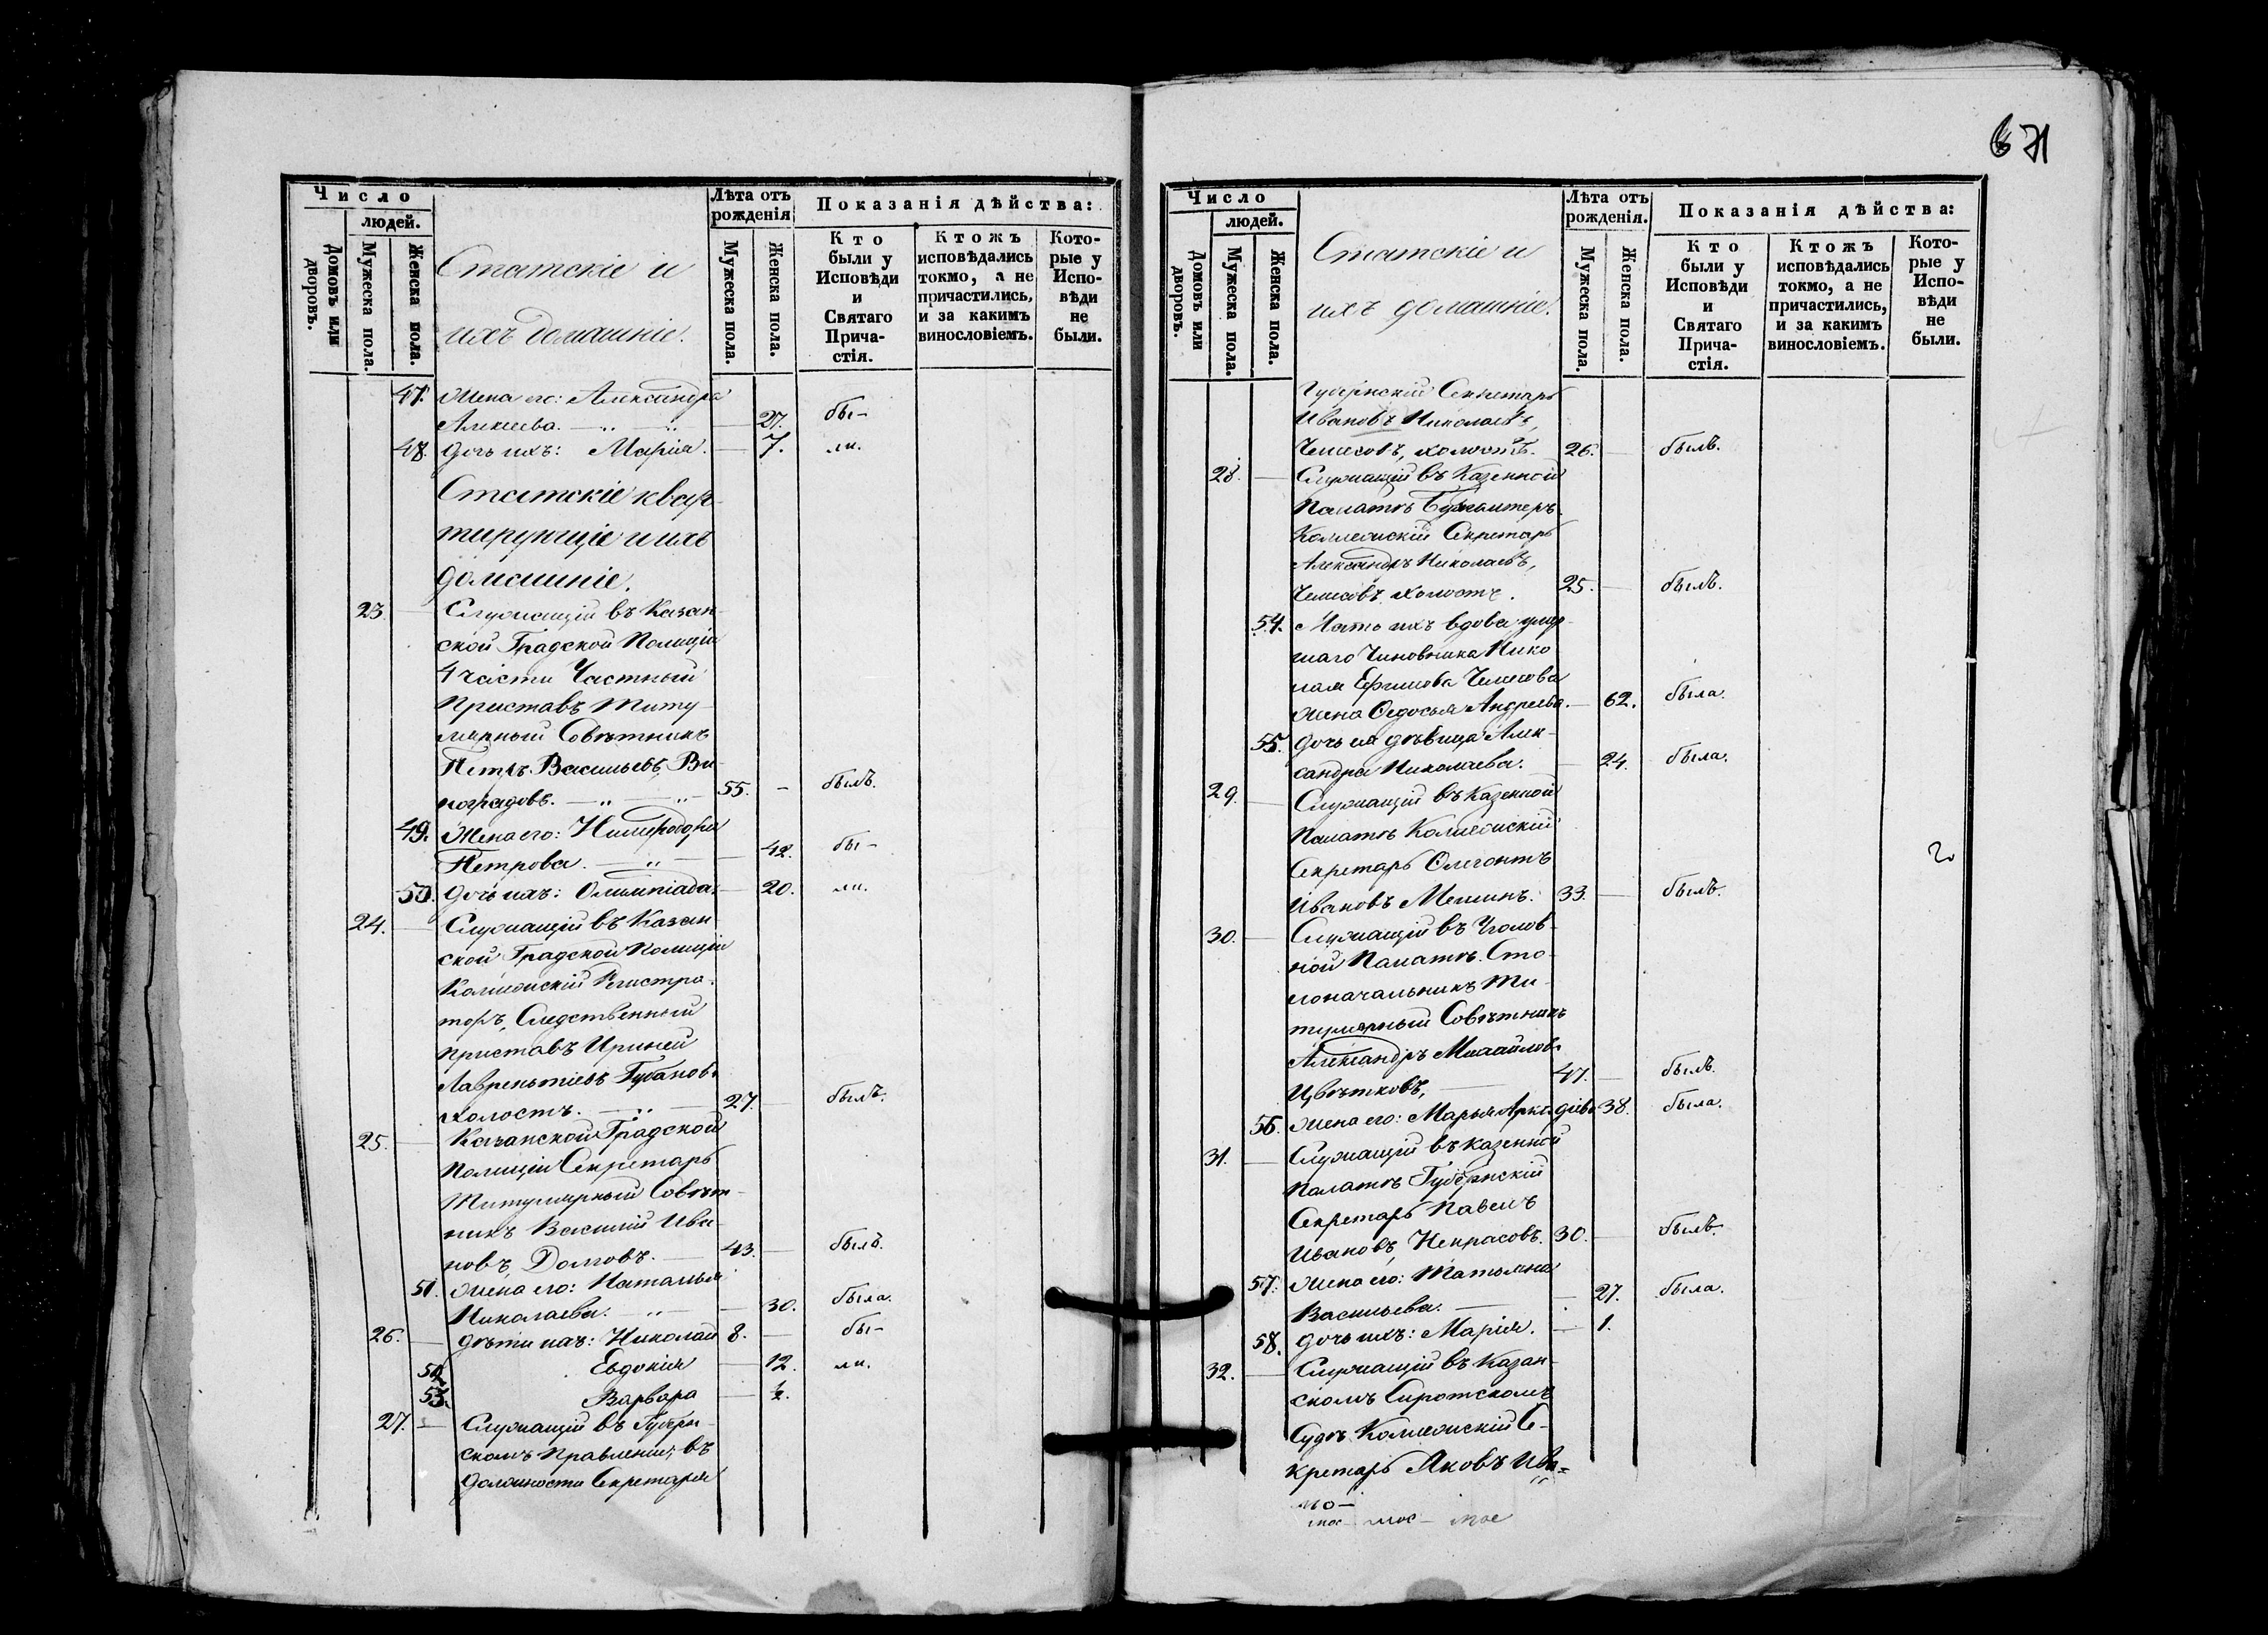 Число
людей.
Домовъ или дворовъ.
Мужеска пола.
Женска пола.
Статскіе и
ихъ домашніе.
Лѣта отъ рожденія
Мужеска пола.
Женска пола.
Показанія дѣйства:
Кто были у Исповѣди и Святаго Прича-стія.
Ктожъ исповѣдались токмо, а не причастились, и за какимъ винословіемъ.
Кото-рые у Испо-вѣди не были.
47. Жена его: Александра
Алексеева. 27. бы-
48. Дочь ихъ: Марія. 7. ли.
Статскіе квар-
тирующіе и ихъ
домашніе.
23. Служащій въ Казан-
ской Градской Полиціи
4 части Частный
Приставъ Титу-
лярный Совѣтникъ
Петръ Васильевъ Ви-
ноградовъ. 55. былъ.
49. Жена его:
Петрова. 42. бы-
50. Дочь ихъ: Олимпіада 20. ли.
24. Служащій въ Казан
ской Градской Полиціи
Коллежскій Регистра-
торъ, Следственный
Приставъ Ириней
Лаврентіевъ Губановъ
холостъ. 27. былъ.
25. Казанской Градской
Полиціи Секретарь
Титулярный Совѣт-
никъ Василій Ива-
новъ Долговъ. 43. былъ.
51. Жена его: Наталья
Николаева. 30. была.
26. Дѣти ихъ: Николай 8. бы-
52. Евдокія 12. ли.
53. Варвара ½.
27. Служащій въ Губерн-
скомъ Правленіи, въ
должности Секретаря
671
Число
людей.
Домовъ или дворовъ.
Мужеска пола.
Женска пола.
Статскіе и
ихъ домашніе.
Лѣта отъ рожденія.
Мужеска пола.
Женска пола.
Показанія дѣйства:
Кто были у Исповѣди и Святаго Прича-стія.
Ктожъ исповѣдались токмо, а не причастились, и за какимъ винословіемъ.
Кото-рые у Испо-вѣди не были.
Губернскій Секретарь
Ивановъ Николаевъ,
Чемесовъ, холостъ. 26. былъ.
28. Служащій въ Казенной
Палатѣ Бухгалтеръ
Коллежскій Секретарь
Александръ Николаевъ,
Чемесовъ холостъ. 25. былъ.
54. Мать ихъ вдова умер-
шаго Чиновника Нико
лая Ефимова Чемесова
жена Федосья Андреева. 62. была.
55. Дочь ея дѣвица Алек-
сандра Николаева. 24. была.
29. Служащій въ Казенной
Палатѣ Коллежскій
Секретарь Олегонтъ
Ивановъ Мешинъ. 33. былъ.
30. Служащій въ Уголов-
ной Палатѣ Сто-
лоначальникъ Ти-
тулярный Совѣтникъ
Александръ Михайловъ
Цвѣтковъ, 47. былъ.
56. Жена его: Марья Аркадіева 38. была.
31. Служащій въ Казенной
Палатѣ Губернскій
Секретарь Павелъ
Ивановъ, Некрасовъ. 30. былъ.
57. Жена его: Татьяна
Васильева. 27. была.
58. Дочь ихъ: Марія. 1.
32. Служащій въ Казан-
скомъ Сиротскомъ
Судѣ Коллежскій Се-
кретарь Яковъ Ива=